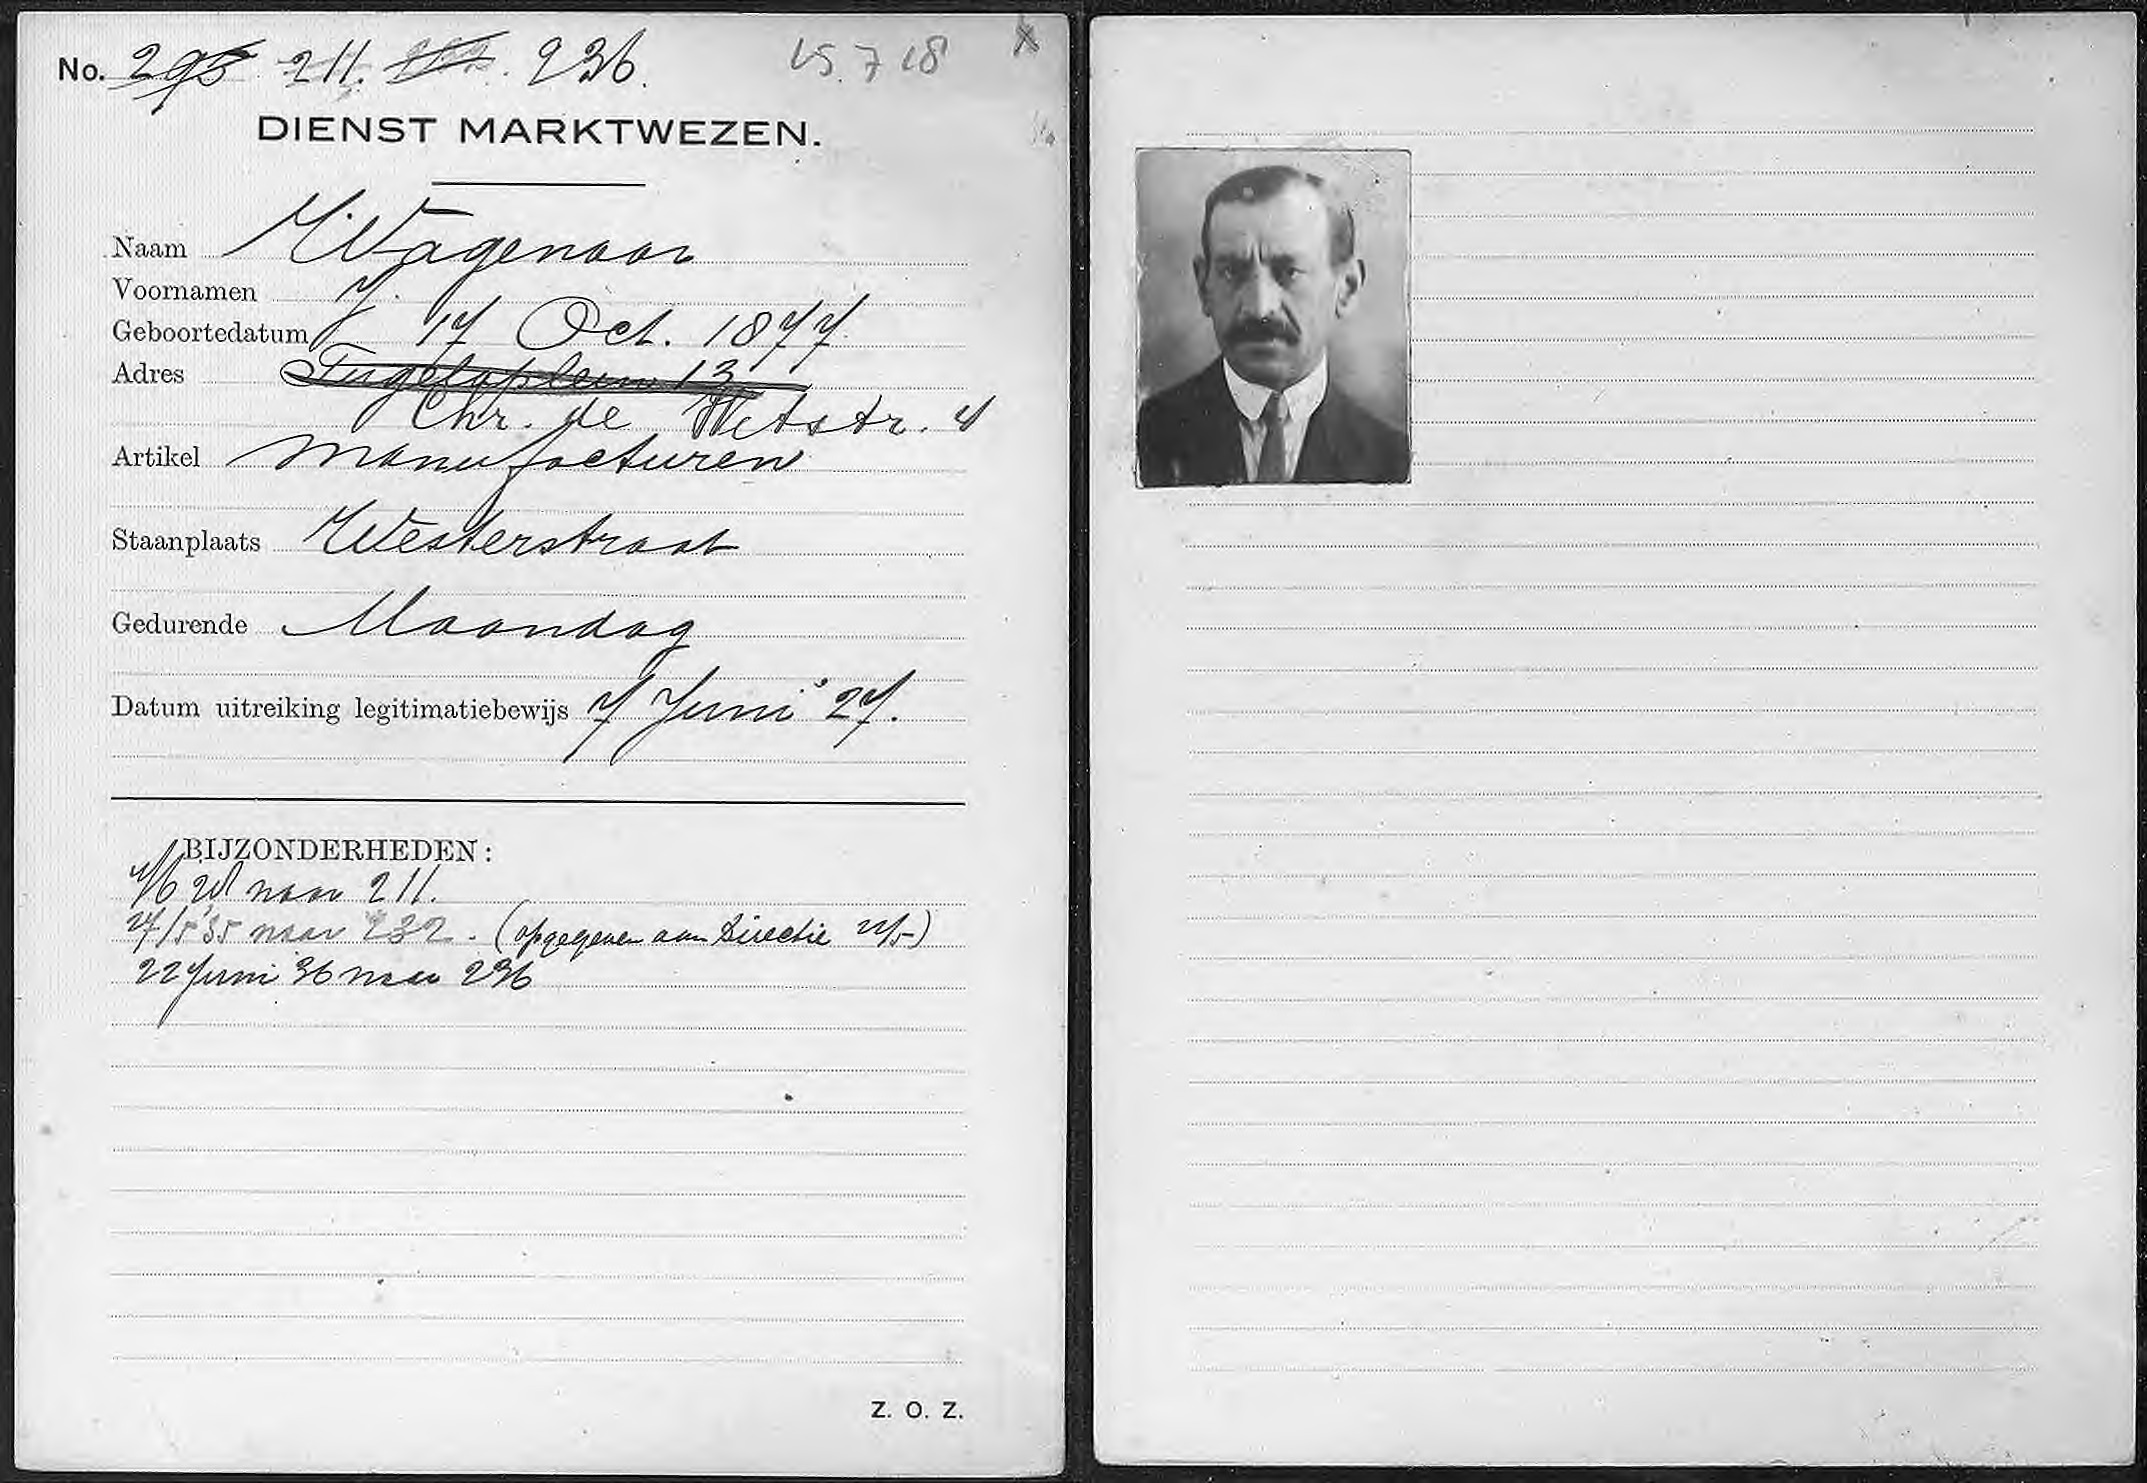 No. 295 211. 232. 236. 15.7 18
DIENST MARKTWEZEN.
Naam Wagenaar
Voornamen J.
Geboortedatum 17 Oct. 1877.
Adres Tugelaplein 13
Chr. de Wetstr. 4
Artikel Manufacturen
Staanplaats Westerstraat
Gedurende Maandag
Datum uitreiking legitimatiebewijs 7 Juni '27.
BIJZONDERHEDEN:
naar 211.
27/5 '35 naar 232. (opgegeven aan Directie
22 Juni 36 naar 236
Z. O. Z.